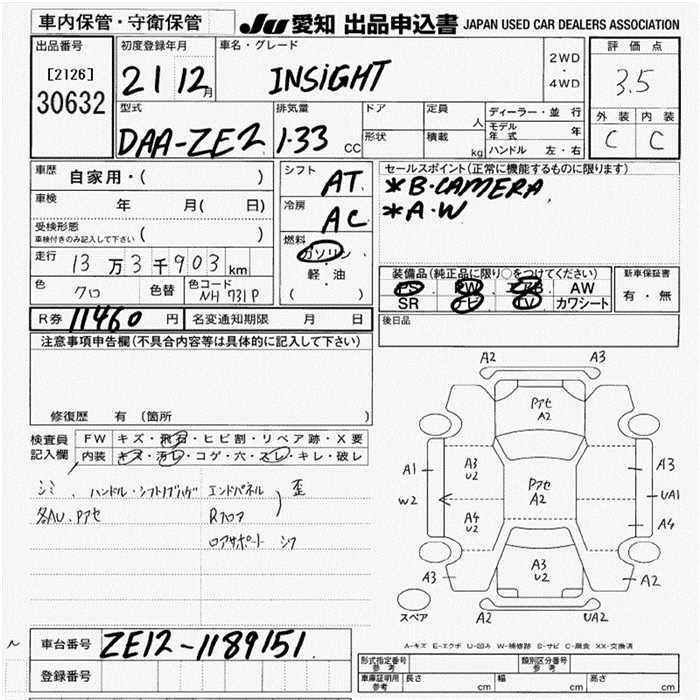 車内保管・守衛保管
JU 愛知 出品申込書 JAPAN USED CAR DEALERS ASSOCIATION
出品番号
[2126]
30632
初度登録年月
21 12月
車名・グレード
INSiGHT
2WD
・
4WD
評価点
3.5
外装 内装
C C
型式
DAA-ZE2
排気量
1.33 CC
ドア
形状
定員 人
積載 kg
ディーラー・並行
モデル年式 年
ハンドル 左・右
車歴 自家用・( )
車検 年 月( 日)
受検形態
車検付きのみ記入して下さい ( )
走行 13万3千903km
色 クロ 色替 色コード NH731P
シフト AT
冷房 AC
燃料
ガソリン
・
軽・油
( )
セールスポイント(正常に機能するものに限ります)
*B・CAMERA
*A・W
装備品(純正品に限り○をつけてください)
PS PW エアB AW
SR ナビ TV カワシート
新車保証書
有・無
R券 11460 円 名変通知期限 月 日
後日品
注意事項申告欄(不具合内容等は具体的に記入して下さい)
修復歴 有(箇所
検査員
記入欄
FW キズ・飛石・ヒビ割・リペア跡・X要
内装 キズ・汚レ・コゲ・穴・スレ・キレ・破レ
シミ、ハンドル・シフトノブハゲ エンドパネル 歪
各AU、Pアセ Rフロア
ロアサポート
A2 A3
Pアセ
A2
A1 A3
U2 A3
W2 Pアセ
A2 UA1
A4
U2 A4
A3 A3
U2 A2
スペア A2 UA2
A-キズ E-エクボ U-凹み W-補修跡 S-サビ C-腐食 XX-交換済
車台番号 ZE12-1189151
登録番号
型式指定番号
参考
類別区分番号
参考
車庫証明用
参考
長さ cm 幅 cm 高さ cm